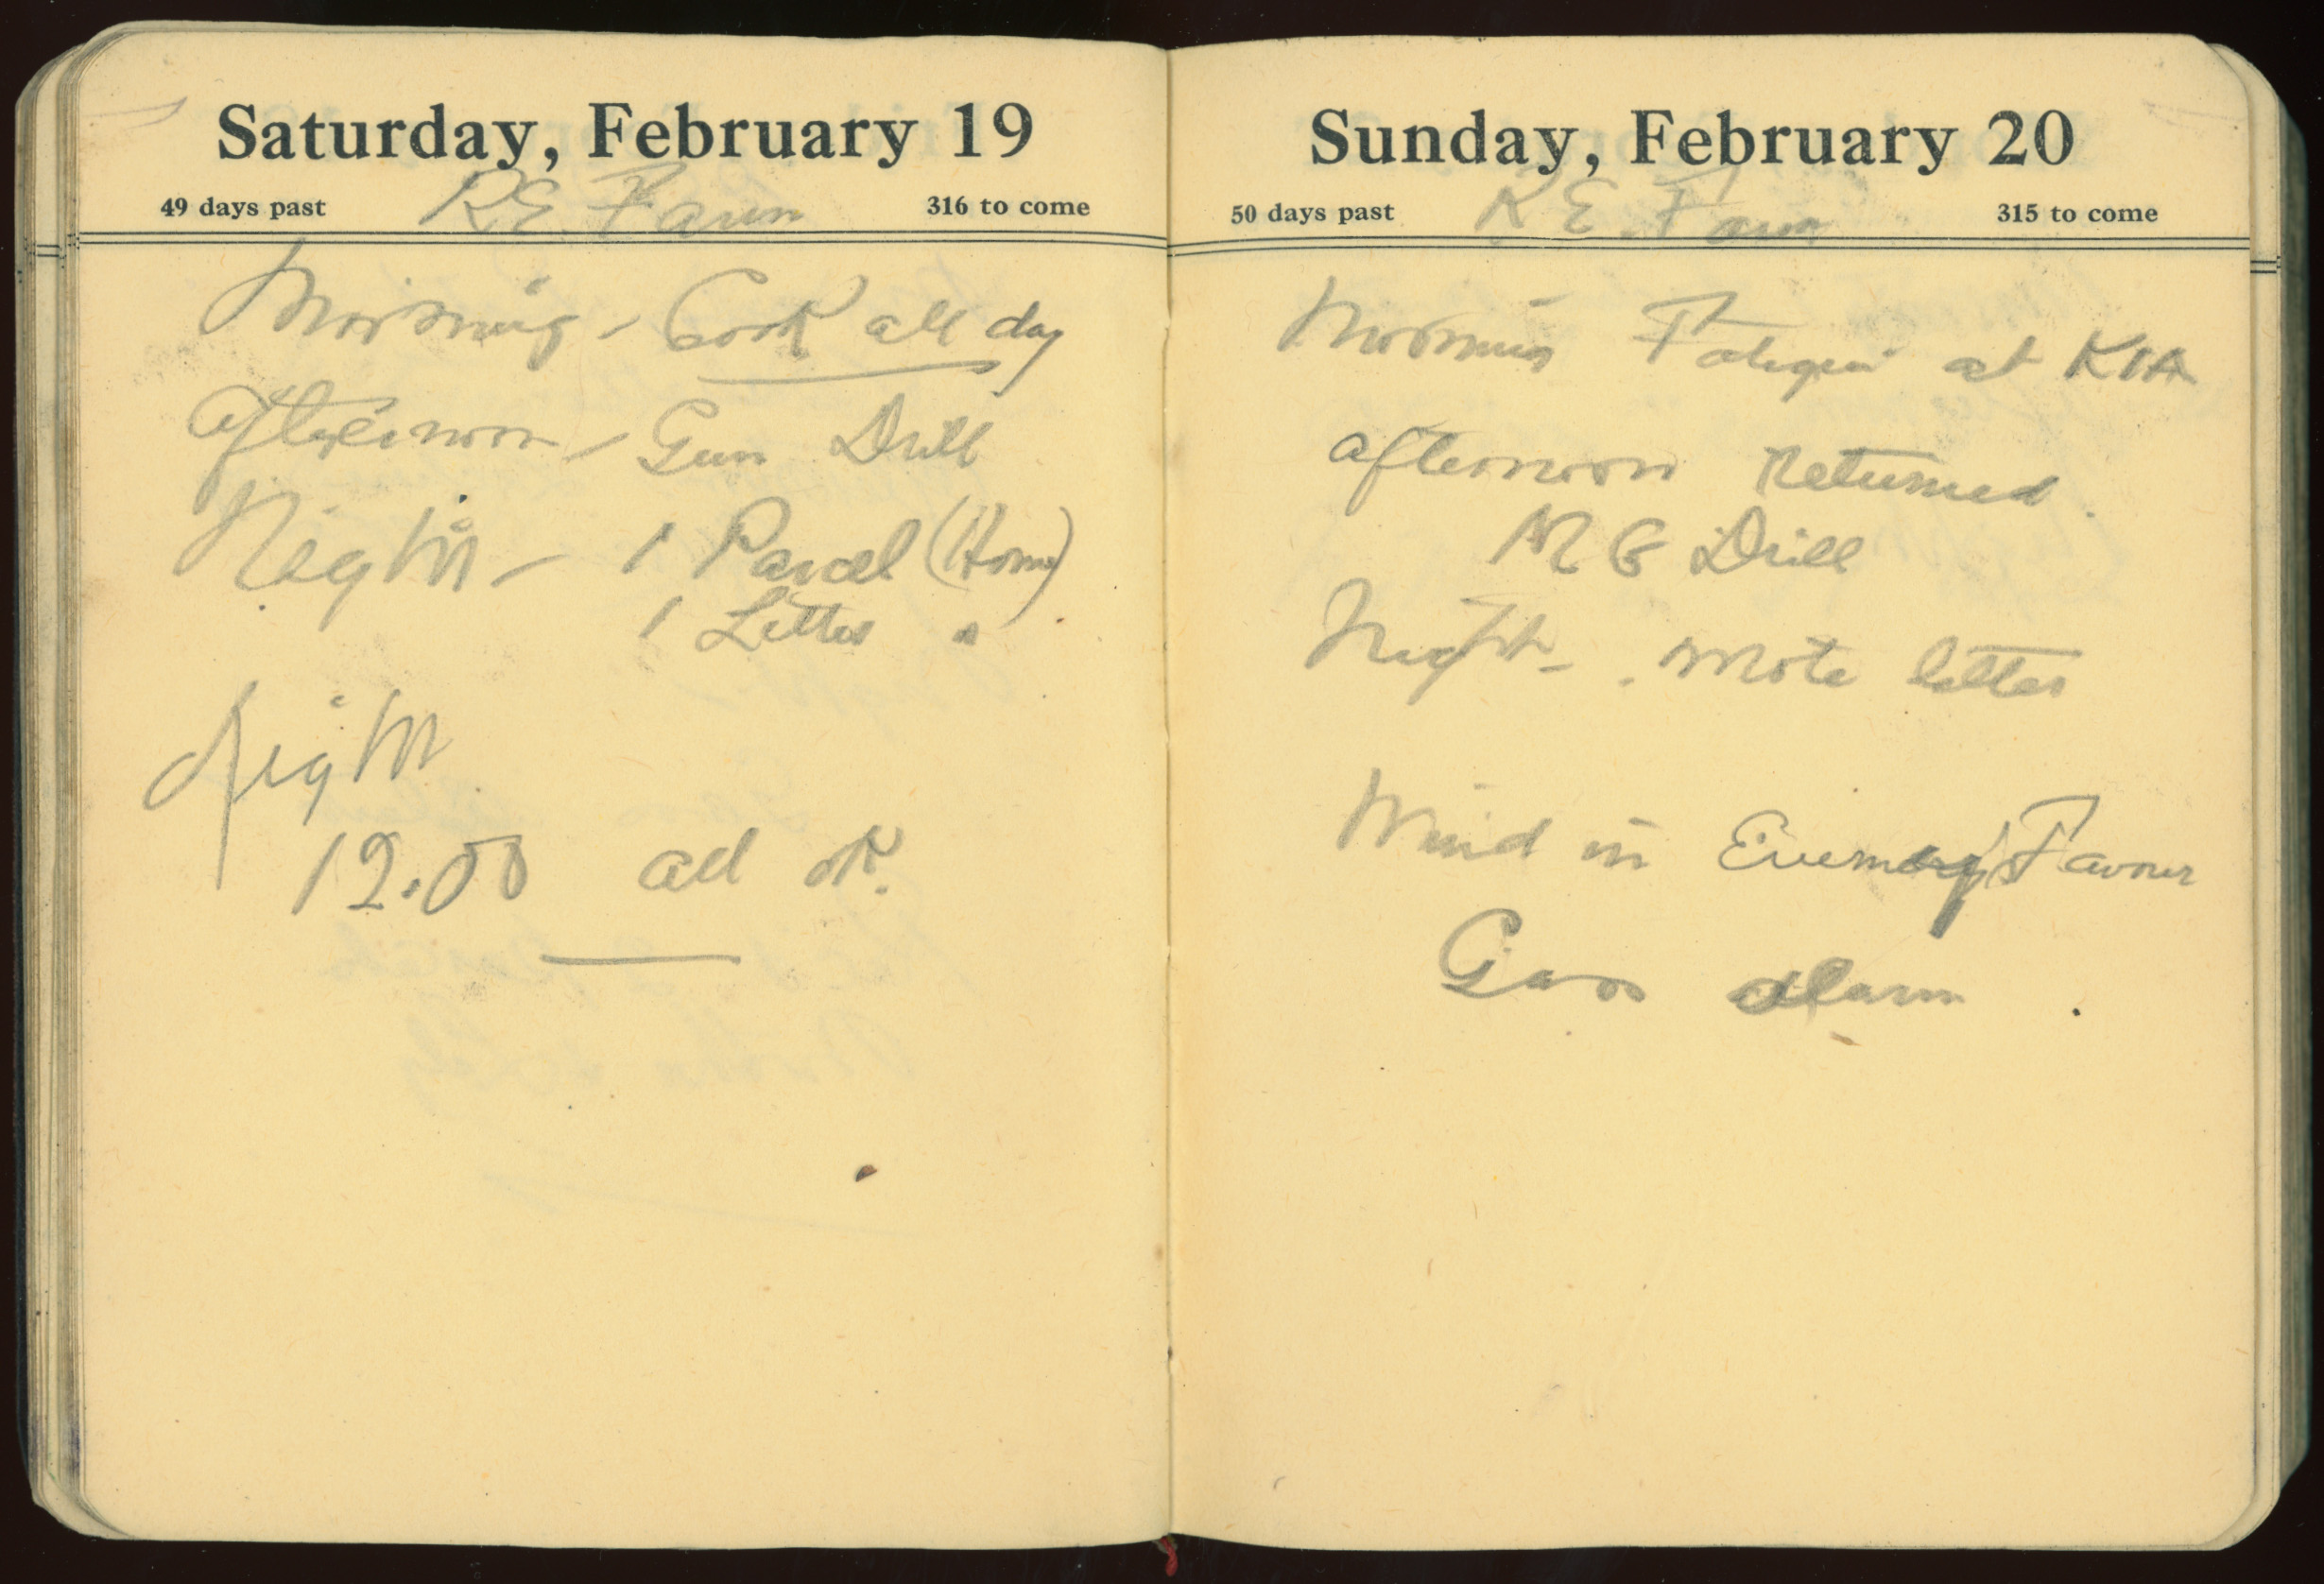 Saturday, February 19
49 days past RE Farm 316 to come
Morning - Cook all day
Afternoon - Gun Drill
Night - 1 Parcel (Home)
1 Letter "
Night
12.00 all ok.
Sunday, February 20
50 days past RE. Farm 315 to come
Morning Fatigue at
afternoon Returned.
M G Drill
Night - wrote letter
Wind in Enemy's Favour
Gas alarm.